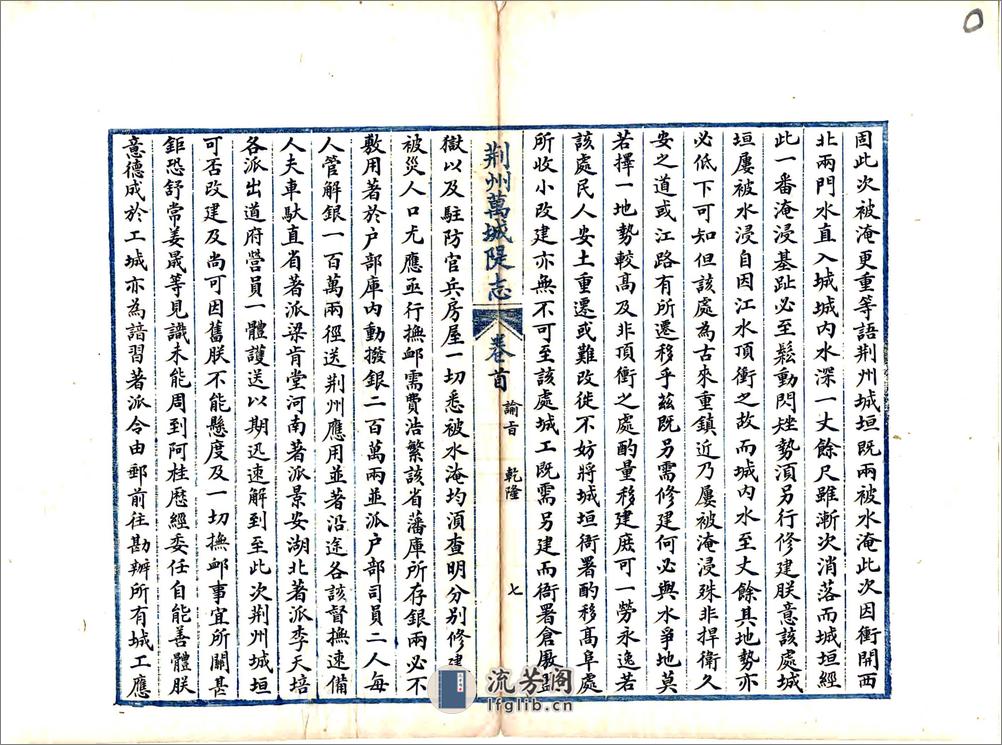 因此次被淹更重等語荆州城垣既兩被水淹此次因衝開西
北兩門水直入城城内水深一丈餘尺雖漸次消落而城垣經
此一番淹浸基趾必至鬆動閃矬勢湏另行修建朕意該處城
垣屢被水浸自因江水頂衝之故而城内水至丈餘其地勢亦
必低下可知但該處為古來重鎮近乃屢被淹浸殊非捍衛久
安之道或江路有所遷移乎兹既另需修建何必與水爭地莫
若擇一地勢較高及非頂衝之處酌量移建庶可一勞永逸若
該處民人安土重遷或難改徙不妨將城垣衙署酌移髙阜處
所收小改建亦無不可至該處城工既需另建而衙署倉廒監
荆州萬城隄志 卷首 諭旨 乾隆 七
獄以及駐防官兵房屋一切悉被水淹均湏查明分别修建
被災人口尤應亟行撫䘏需費浩繁該省藩庫所存銀兩必不
敷用著於户部庫内動撥銀二百萬兩並派户部司員二人每
人管解銀一百萬兩徑送荆州應用並著沿途各該督撫速備
人夫車馱直省著派梁肯堂河南著派景安湖北著派李天培
各派出道府營員一體護送以期迅速解到至此次荆州城垣
可否改建及尚可因舊朕不能懸度及一切撫䘏事宜所關甚
鉅恐舒常姜晟等見識未能周到阿桂歷經委任自能善體朕
意德成於工城亦為諳習著派令由郵前往勘辦所有城工應
流芳阁
lfglib.cn